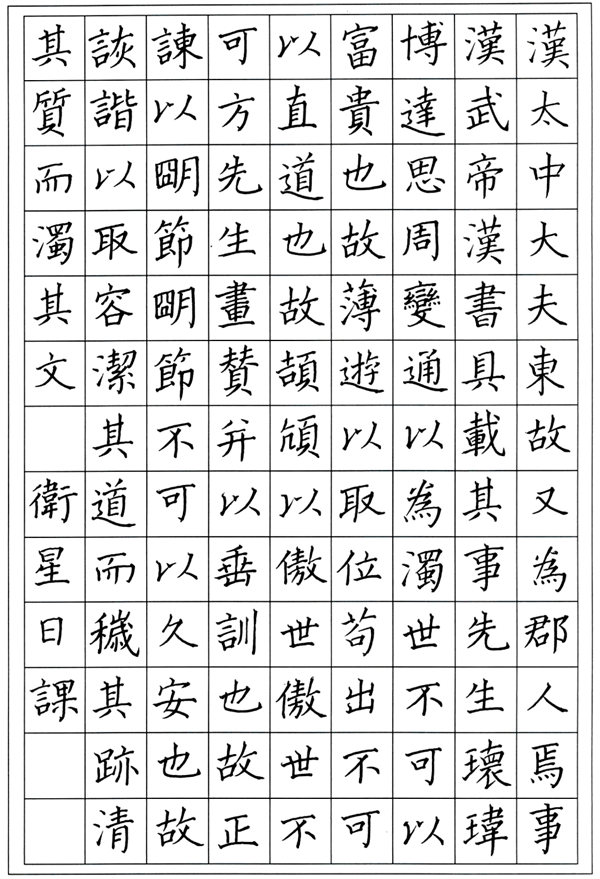 漢太中大夫東故又為郡人焉事
漢武帝漢書具載其事先生瓌瑋
博達思周變通以為濁世不可以
富貴也故薄遊以取位苟出不可
以直道也故頡頏以傲世傲世不
可方先生畫贊并以垂訓也故正
諫以朙節朙節不可以久安也故
詼諧以取容潔其道而穢其跡清
其質而濁其文 衛星日課